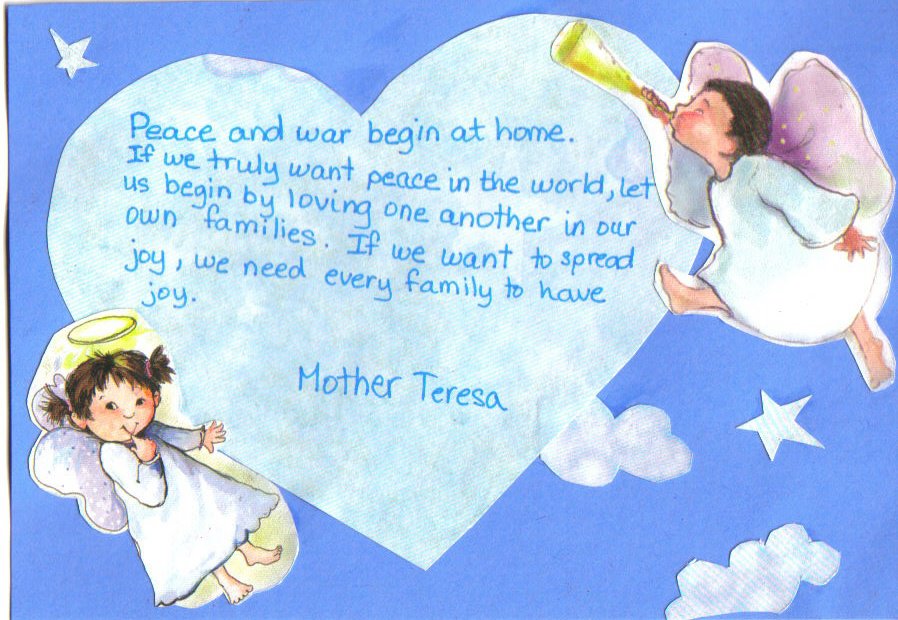 Peace and war begin at home.
If we truly want peace in the world, let
us begin by loving one another in our
own families. If we want to spread
joy, we need every family to have
joy.
Mother Teresa